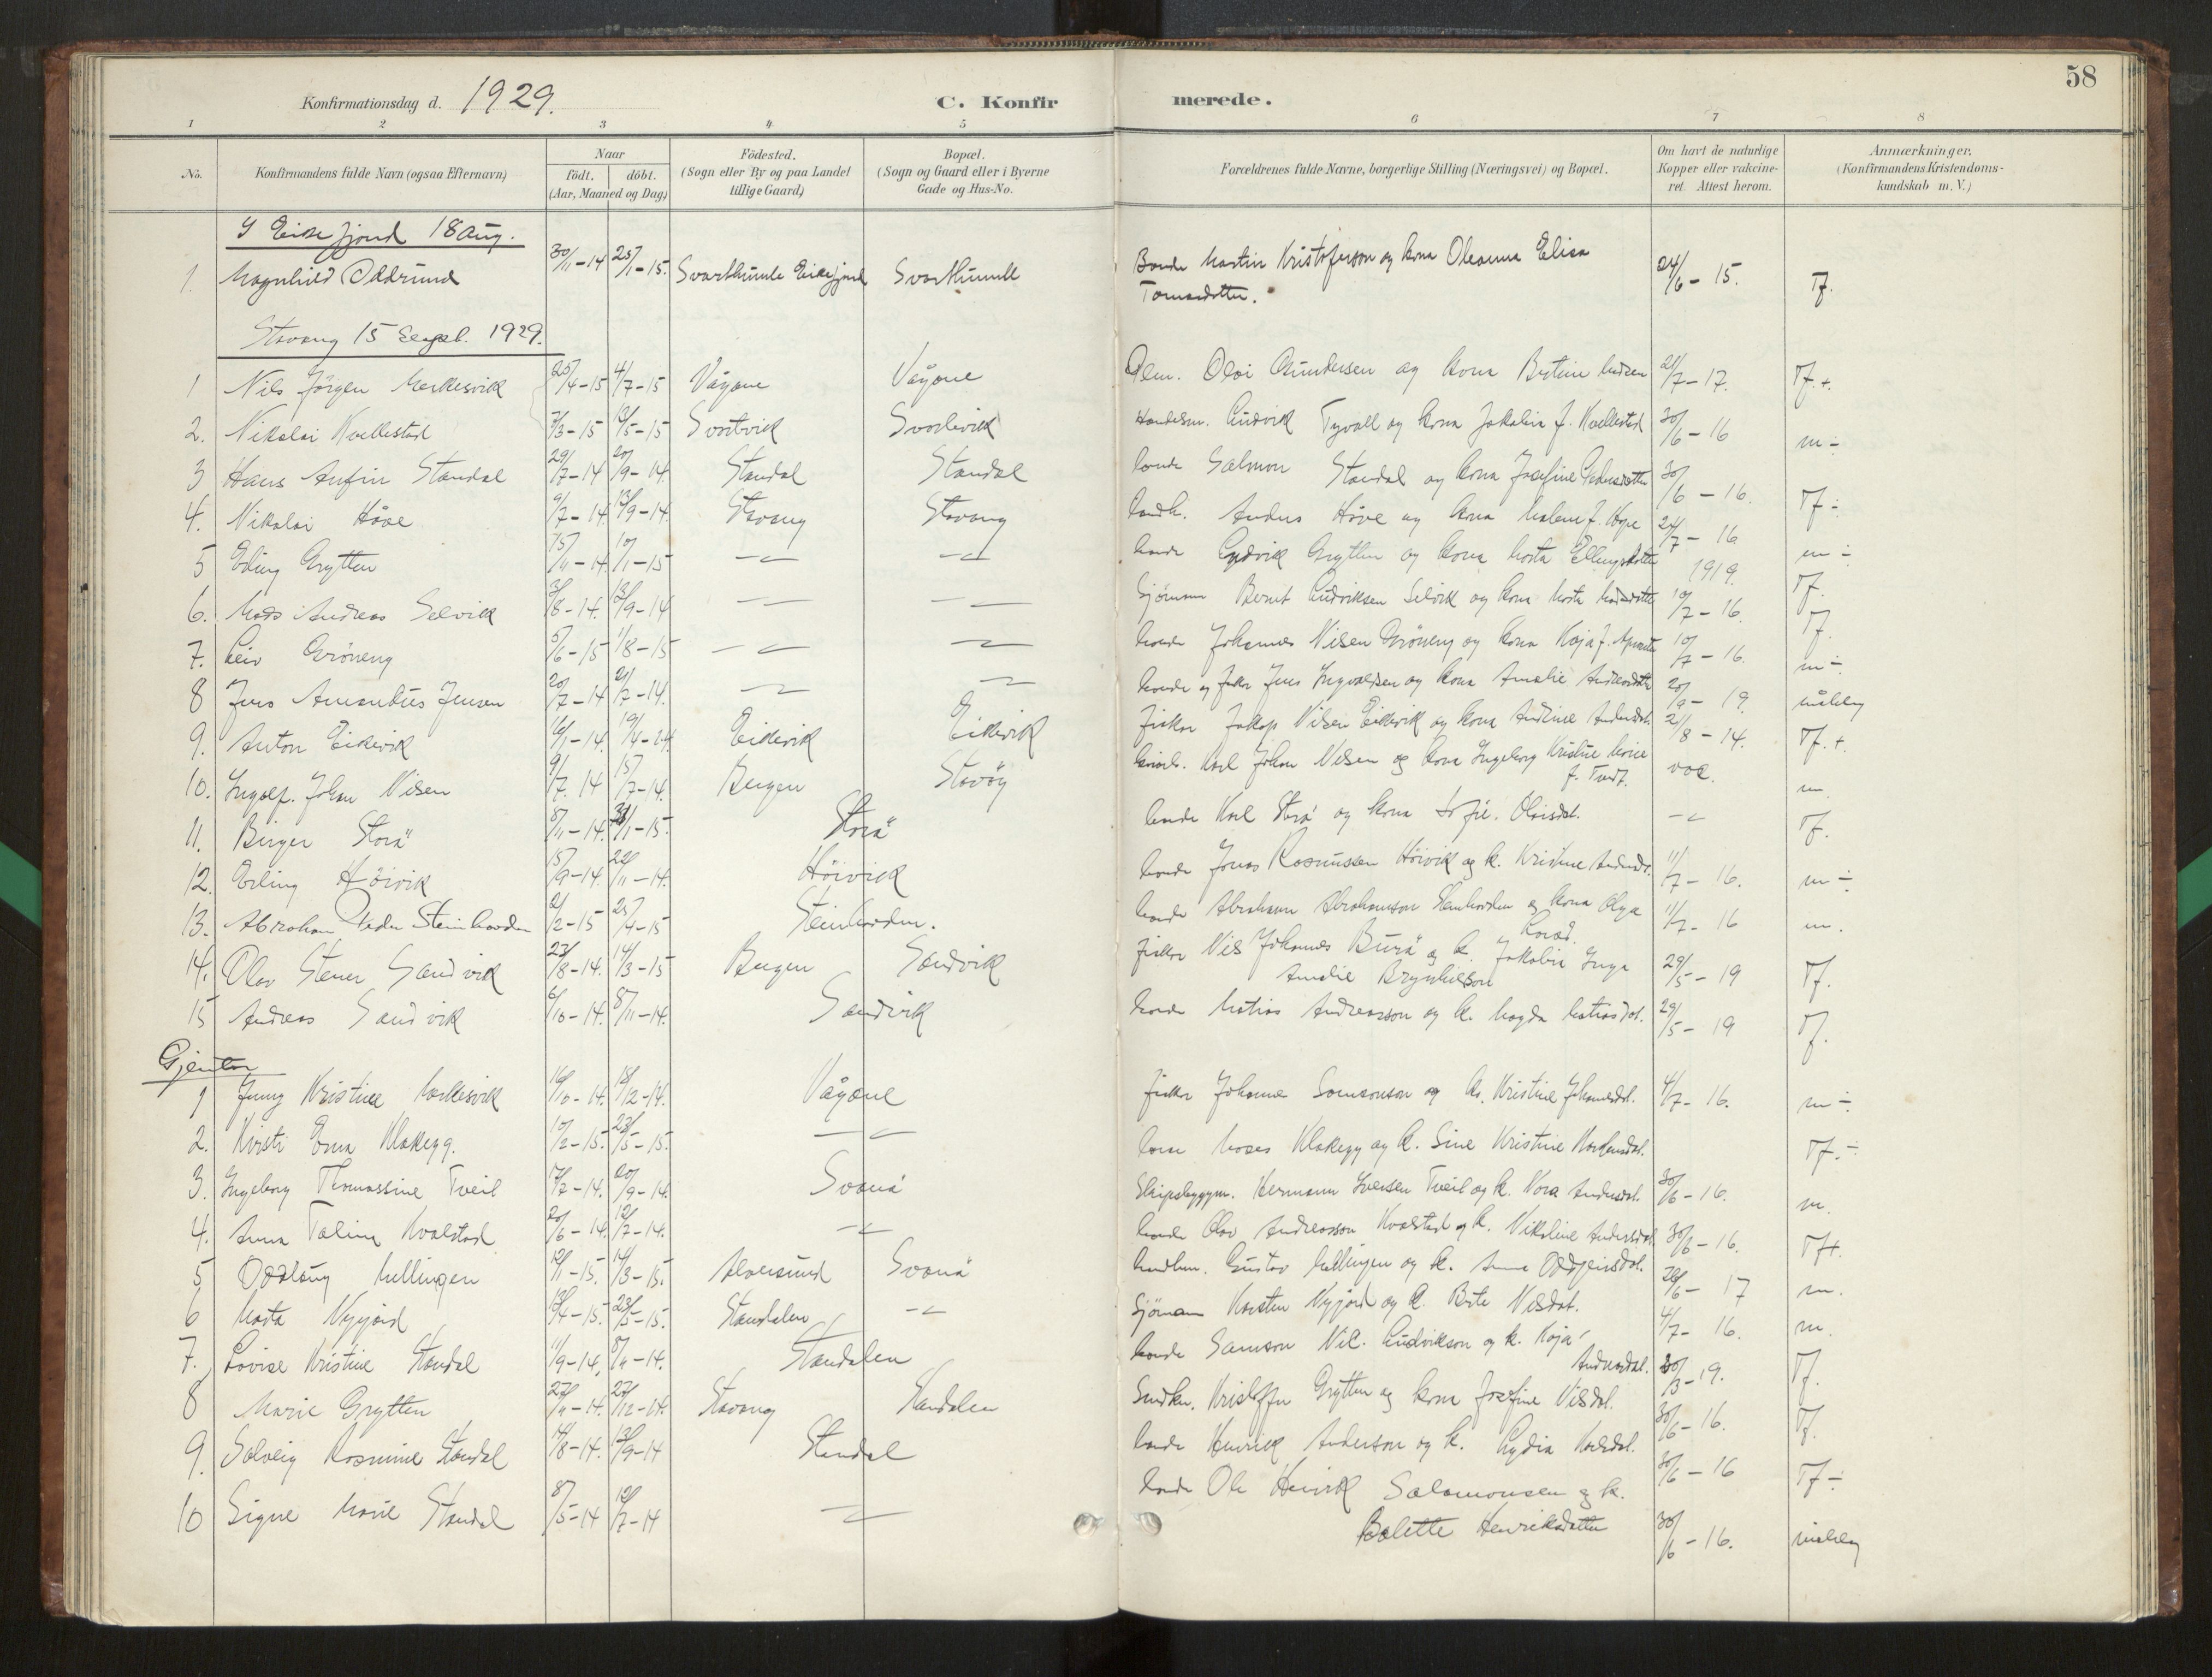 58
Konfirmationsdag d. 1929. C. Konfir merede.
1 2 3 4 5 6 7 8
No. Konfirmandens fulde Navn (ogsaa Efternavn) Naar födt. döbt. (Aar, Maaned og Dag) Födested. (Sogn eller By og paa Landet tillige Gaard) Bopæl. (Sogn og Gaard eller i Byerne Gade og Hus-No. Forældrenes fulde Navne, borgerlige Stilling (Næringsvei) og Bopæl. Om havt de naturlige Kopper eller vakcineret. Attest herom. Anmærkninger. (Konfirmandens Kristendomskundskab m. V.)
I Eikefjord 18 Aug.
1. Magnhild Oddrund 30/11-14 25/1-15. Svarthumle Eikefjord Svarthumle Bonde Martin Kristoferson og kona Oleanna Elisa 24/6-15. Tf.
Tomasdotter.
Stavang 15 Sept. 1929.
1 Nils Jørgen Merkesvik 25/4-15 4/7-15 Vågane Vågane Olai Gundersen og kona 21/7-17. Tf.+
2. Nikolai Kvellestad 7/3-15 13/5-15 Svortvik Svortevik Handelsm. Ludvik Tyvoll og kona Jakolia f. Kvellestad 30/6-16 m ÷
3 Hans Anfin Standal 29/7-14 20/9-14. Standal Standal bonde Salmon Standal og kona Josefine 30/6-16. Tf ÷
4. Nikolai Håve 9/7-14. 13/9-14. Stavang Stavang Andus Håve og kona Malene f. Hope 24/7-16 m ÷
5 Eding Grytten 15/11-14. 10/1-15 bonde Ludvik Grytten og kona Marta Ellingsdotter 1919. Tf.
6. Mads Andreas Selvik 31/8-14. 13/9-14 Sjømann Bernt Ludviksen Selvik og kona Marta Madsdotter 10/7-16. Tf.
7. Leiv Grøneng 5/6-15 1/8-15 bonde Johannes Nilsen Grøneng og kona Kaja f. 10/7-16. m ÷
8 Jens Amandus Jensen 20/7-14 21/7-14. bonde og fisker Jens Ingvaldsen og kona Amalie Andreasdotter 20/9-19. måteleg
9. Anton Eikevik 16/1-14. 19/4-14. Eikevik Eikevik Fisker Jakop Nilsen Eikevik og kona Andrine Andersdot. 21/8-14. Tf.+.
10. Ingolf. Johan Nilsen 9/7.14 15/7-14. Bergen Stavøy Karl Johan Nilsen og kona Ingeborg Kristine Marie vac. m
f. Tvedt.
11. Birger Storå 8/11-14. 31/1-15. Storå bonde Karl Storå og kona Sofie. Olaisdot. Tf.
12. Erling Høivik 15/9-14. 22/11-14. Høivik bonde Jonas Rasmussen Høivik og k. Kristine Andersd. 11/7-16. m ÷
13. Abraham Peder Steinhovden 21/2-15 25/4-15 Steinhovden. bonde Abraham Abrahamson Steinhovden og kona Olga 11/7-16 m.
14. Olav Stener Sandvik 23/8-14. 14/3-15 Bergen Sandvik fisker Nils Johannes Burå og k. Jakobia Inga 29/5-19 Tf.
Amalie Brynhildson
15 Andreas Sandvik 6/10-14. 8/11-14. Sandvik bonde Matias Andreasson og k. Magda Matiasdot. 29/5-19 Tf.
Gjentor
1 Jenny Kristine Markesvik 16/10-14. 18/12-14. Vågane fisker Johanne Samsonson og k. Kristine Johannesdot. 4/7-16. m ÷
2. Kirsti Erna Klakegg. 10/2-15. 23/5-15. Moses Klakegg og k. Sine Kristine Tf. ÷
3. Ingeborg Thomassine Tveit 17/7-14. 20/9-14. Svanå Skipsbyggjm. Hermann Iversen Tveit og k. Nora Andersdot. 30/6-16. m.
4. Anna Taline Kvalstad 20/6-14. 12/7-14. bonde Olav Andreasson Kvalstad og k. Nikoline Andersdot. 30/6-16. Tf+.
5 Oddlaug Mellingen 12/1-15. 14/3-15. Alversund Svanå Gustav Mellingen og k. Anna 26/6-17 m.
6 Marta Nygjord 13/4-15. 23/5-15. Standalen Sjømann Karsten Nygjord og k. Brite Nilsdot. 4/7-16. m.
7. Lovise Kristine Standal 11/9-14. 8/11-14. Standalen bonde Samson Nil. Ludvikson og k. Kaja 30/3-19. Tf.
Andersdot.
8 Marie Grytten 27/11-14. 27/12-14. Stavang Standalen Kristoffer Grytten og kona Josefine Nilsdot. 30/6-16. Tf.
9. Solveig Rasmine Standal 14/8-14. 13/9-14 Standal bonde Henrik Anderson og k. Lydia 30/6-16 Tf ÷
10 Signe Marie Standal 8/5-14 12/7-14 bonde Ole Henrik Salamonsen og k. 30/6-16. måteleg
Bolette Henriksdotter